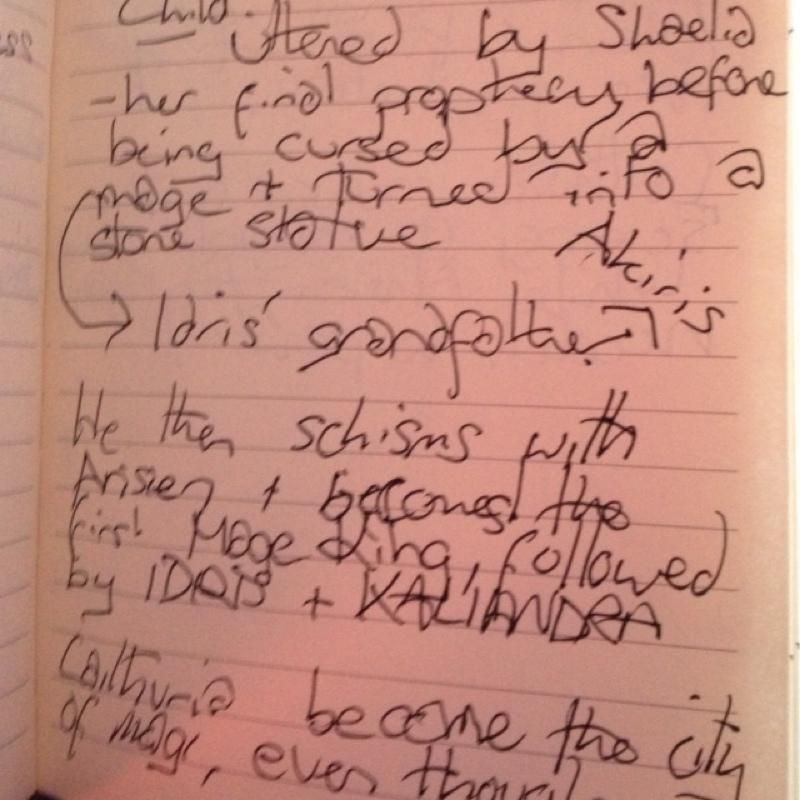 Child.
Uttered by Shaelia
-her final prophecy before
being cursed by a
mage + turned into a
stone statue Akiris
→ Idris' grandfather
He then schisms with
Arisien + becomes the
first Mage King, followed
by IDRIS + KALIANDRA
Caithuria become the city
of magi, even though